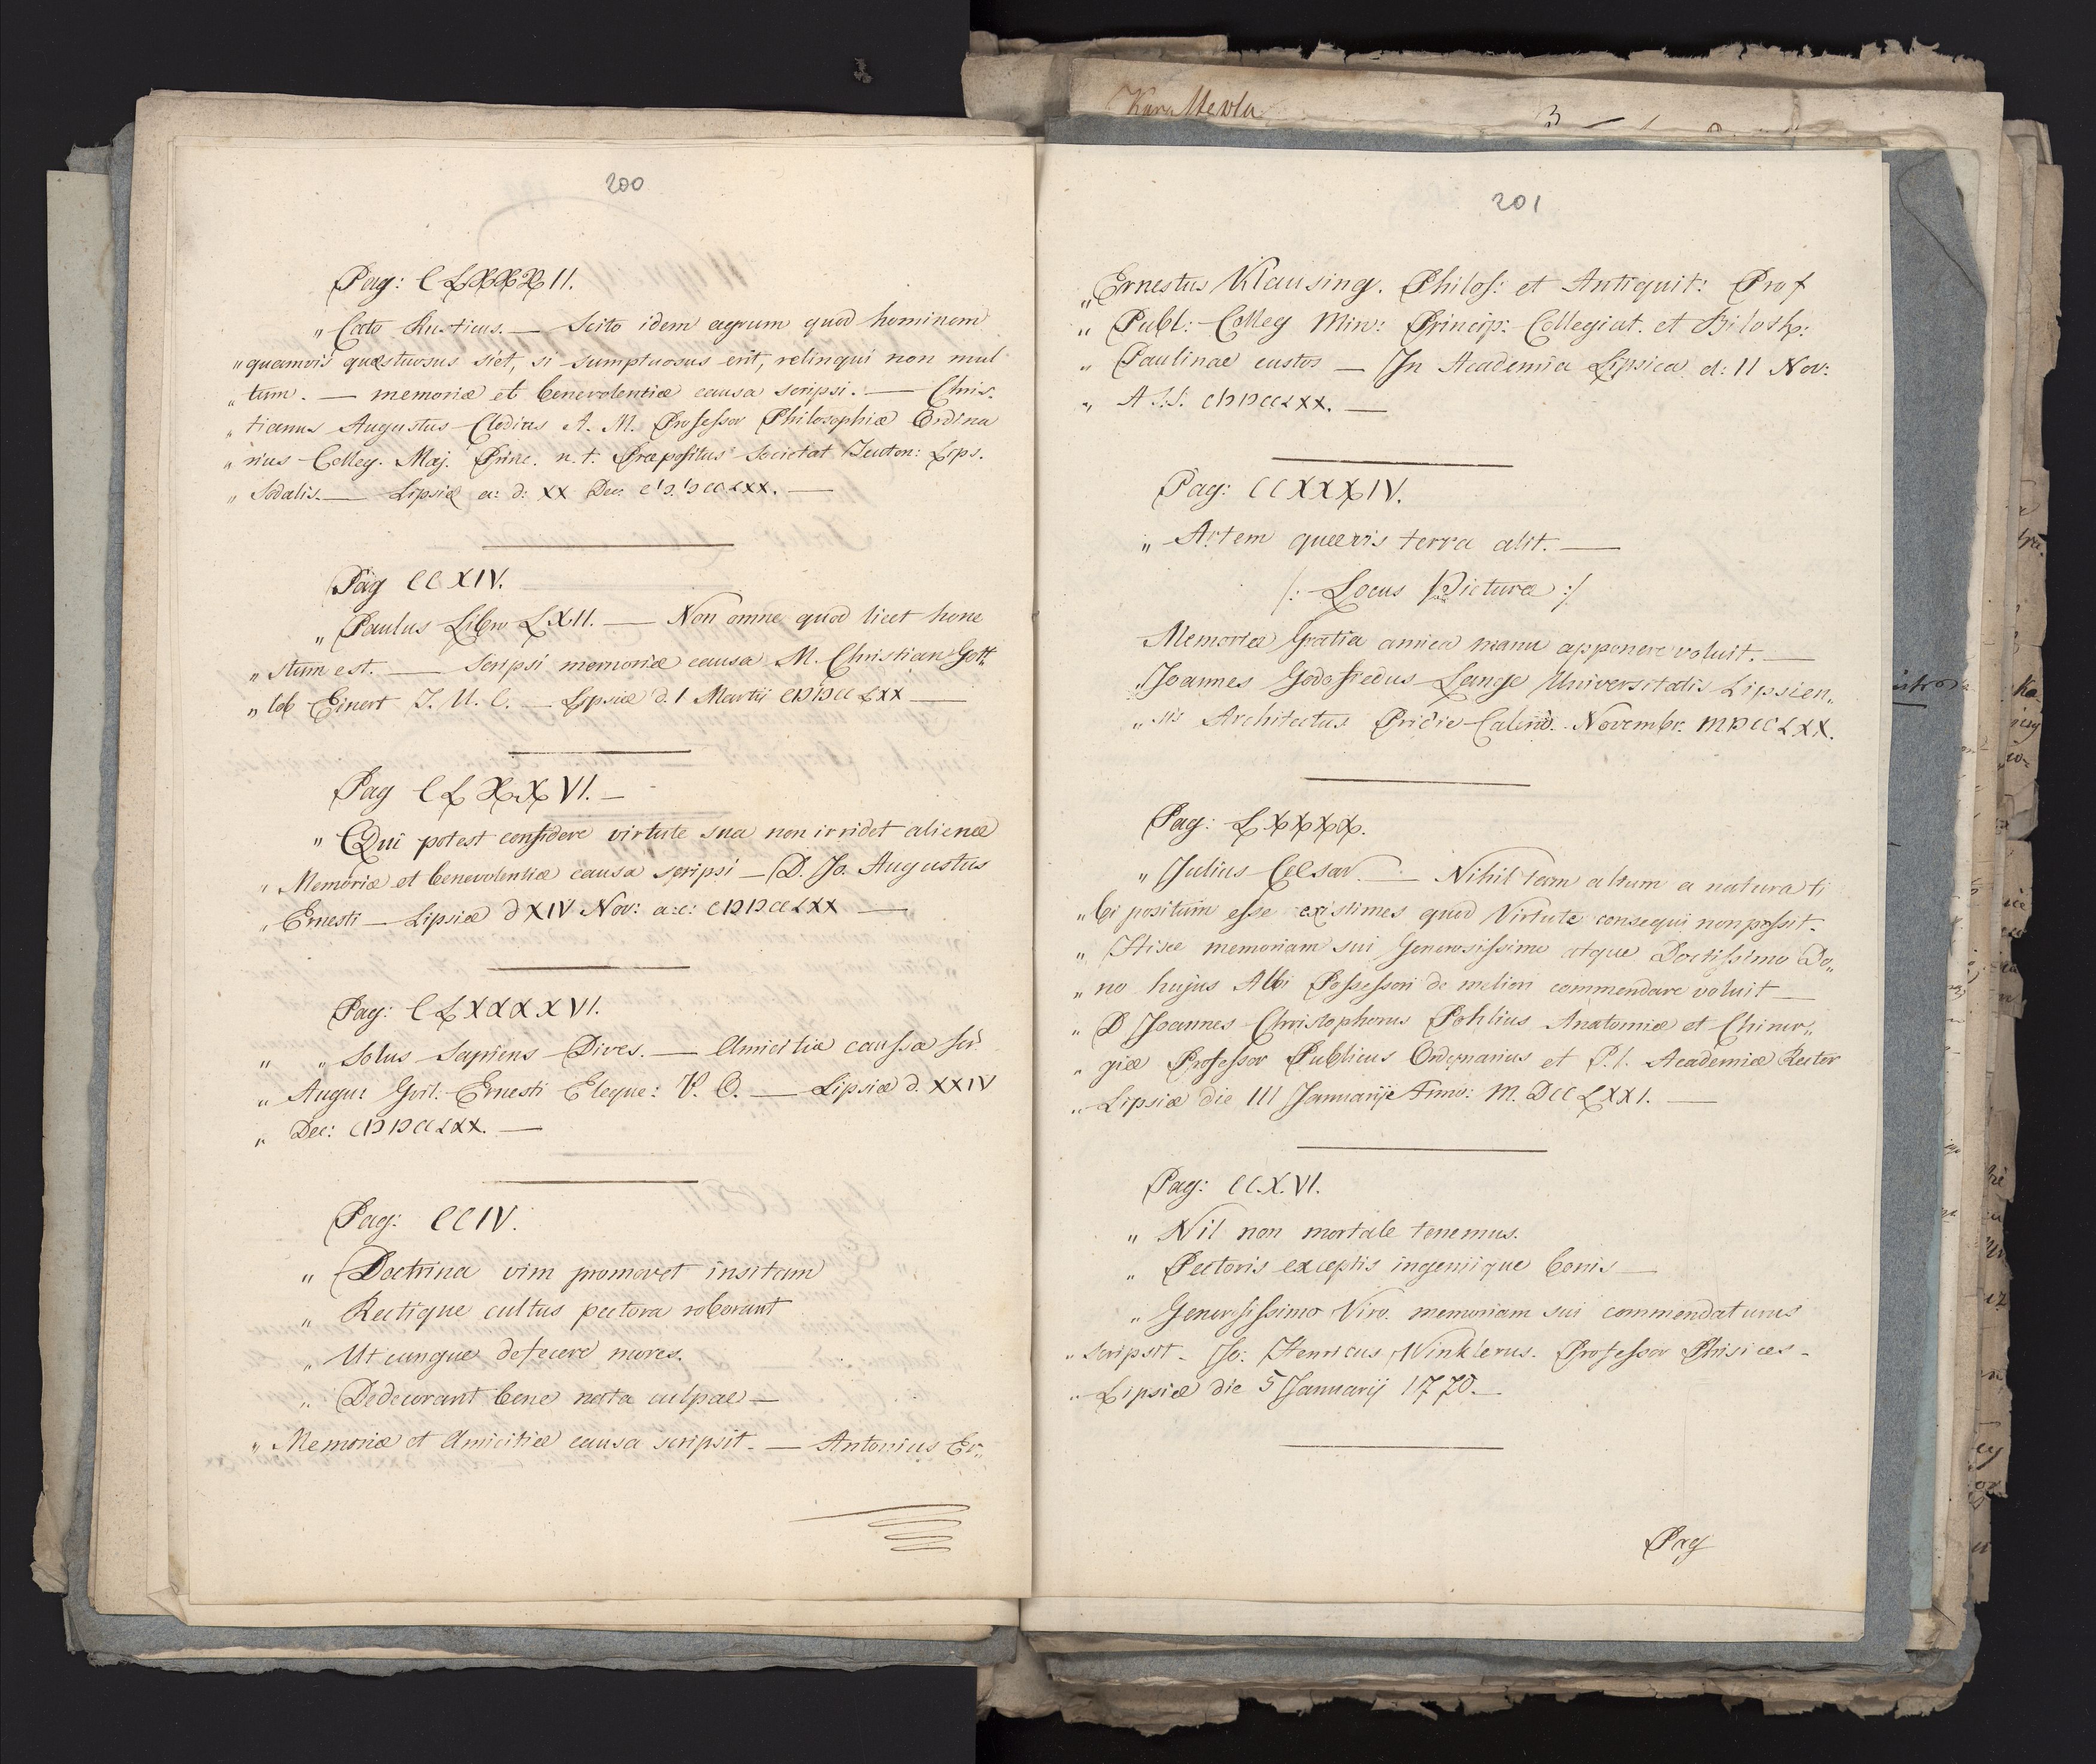 200
Pag: CLXXXII.
„ Cato Rusticus. — Scito idem agrum quod hominem
„ quamvis quæstuosus siet, si sumptuosus erit, relinqui non mul
„ tum. — memoriæ et benevolentiæ causa scripsi. — Chris.
„ tianus Augustus Clodius A. M. Professor Philosophiæ Ordina
„ rius Colleg. Maj. Princ. n. t. Præpositus Societat Teuton: Lips.
„ Sodalis. — Lipsiæ a: d: XX Dec. CIƆIƆCCLXX. —
Pag CCXIV.
„ Paulus Libro LXII. — Non omne quod licet hone
„ stum est. — Scripsi memoriæ causa M. Christian Gott
„ lob Einert J. U. C. — Lipsiæ d. 1 Martii CIƆIƆCCLXX —
Pag CLXXVI. —
„ Qui potest confidere virtute sua non irridet alienæ
„ Memoriæ et benevolentiæ causa scripsi — D. Jo. Augustus
„ Ernesti — Lipsiæ d XIV Nov: a:c: CIƆIƆCCLXX —
Pag: CLXXXXVI.
„ „ Solus Sapiens Dives. — Amicitiæ caussa scr
„ August Guil: Ernesti Eloque: P. O. — Lipsiæ d. XXIV
„ Dec: CIƆIƆCCLXX. —
Pag: CCIV.
„ Doctrina vim promovet insitam
„ Rectique cultus pectora roborant
„ Utcunque defecere mores.
„ Dedecorant bene nata culpae —
„ Memoriæ et Amicitiæ causa scripsit. — Antonius Er„
201
„ Ernestus Klausing. Philos: et Antiquit: Prof
„ Publ: Colleg Min: Princip: Collegiat. et Bibloth:
„ Paulinae custos — In Academia Lipsica d: 11 Nov:
„ A S.S. CIƆIƆCCLXX. —
Pag: CCXXXIV.
„ Artem quævis terra alit. —
/: Locus Picturæ :/
Memoriæ Gratia amica manu apponere voluit. —
„ Joannes Godofredus Lange Universitatis Lipsien„
„ sis Architectus Pridie Calend. Novembr. MDCCLXX.
Pag: LXXXX.
„ Julius Cæsar. — Nihil tam altum a natura ti
„ bi positum esse existimes quod Virtute consequi non possit.
„ Hisce memoriam sui Generosissimo atque Doctissimo Do„
„ no hujus Albi Possessori de meliori commendare voluit —
„ D Joannes Christophorus Pohlius Anatomiæ et Chirur„
„ giæ Professor Publicus Ordynarius et P. t. Academiæ Rector
„ Lipsiæ die III Januarije Anno: M. DCCLXXI. —
Pag: CC.X.VI.
„ Nil non mortale tenemus.
„ Pectoris exceptis ingeniique bonis —
„ Generosissimo Viro. memoriam sui commendaturus
„ scripsit - Jo: Henricus Winklerus. Professor Phisices -
„ Lipsiæ die 5 Januarij 1770. —
Pag